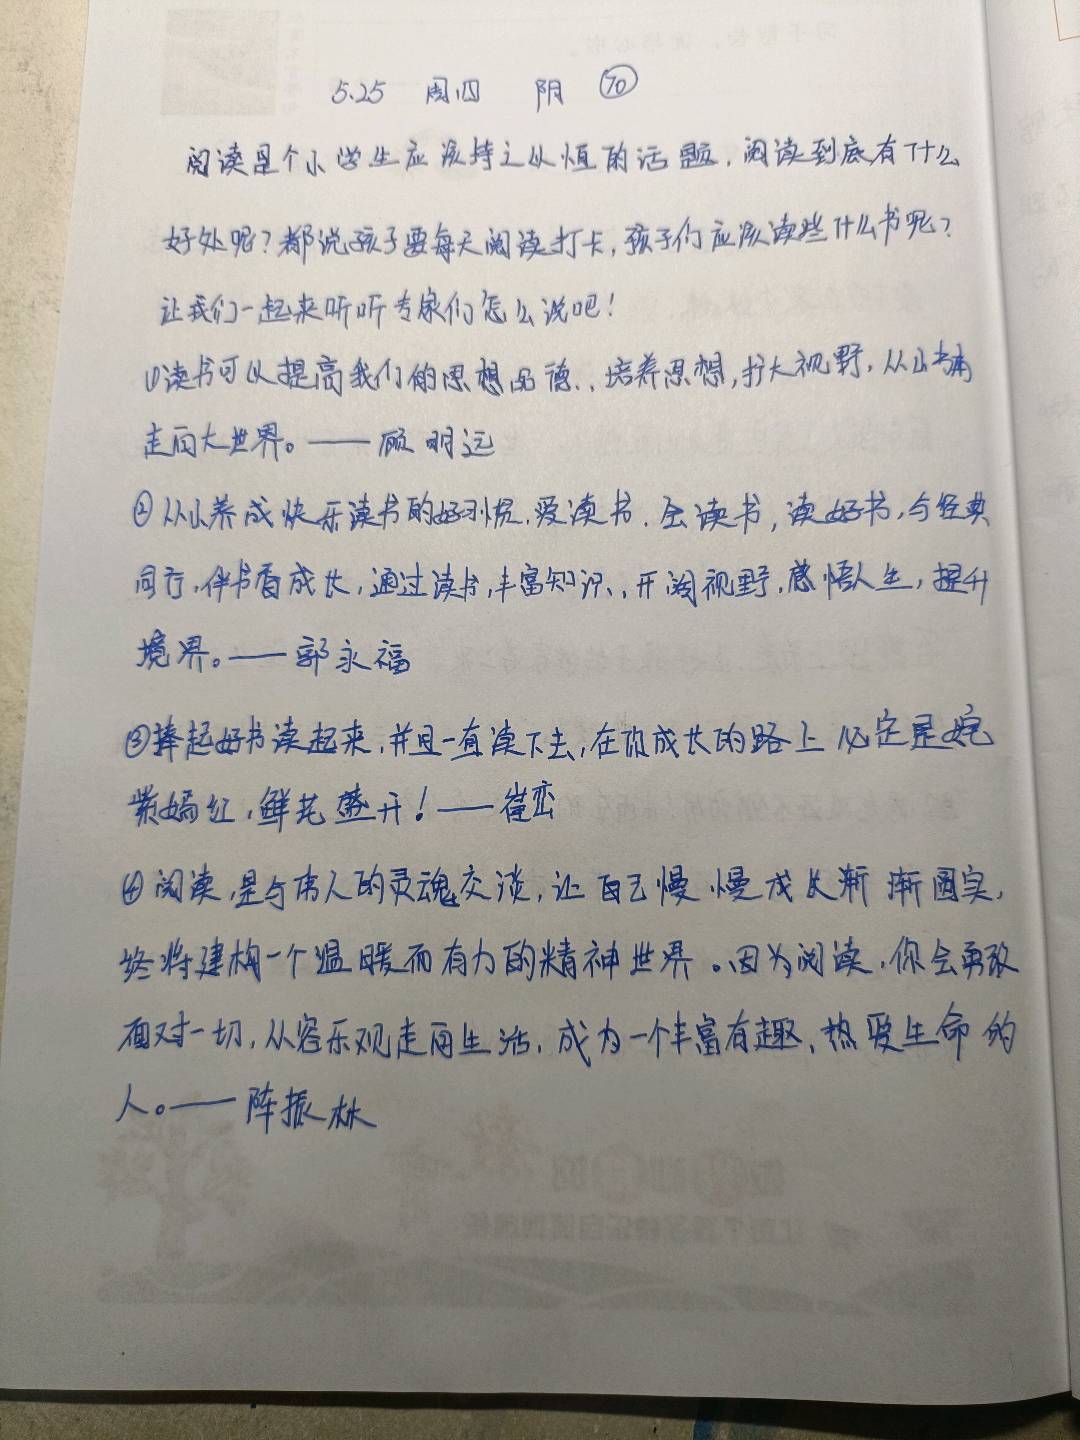 5.25 周四 阴 ⑦⓪
阅读是个小学生应该持之以恒的话题，阅读到底有什么
好处呢？都说孩子要每天阅读打卡，孩子们应该读些什么书呢？
让我们一起来听听专家们怎么说吧！
①读书可以提高我们的思想品德、培养思想，扩大视野，从小书桌
走向大世界。——顾明远
②从小养成快乐读书的好习惯，爱读书、会读书，读好书，与经典
同行，伴书香成长，通过读书，丰富知识、开阔视野，感悟人生，提升
境界。——郭永福
③捧起好书读起来，并且一直读下去，在你成长的路上必定是姹
紫嫣红，鲜花盛开！——崔峦
④阅读，是与伟人的灵魂交谈，让自己慢慢成长渐渐圆实，
终将建构一个温暖而有力的精神世界。因为阅读，你会勇敢
面对一切，从容乐观走向生活，成为一个丰富有趣、热爱生命的
人。——陈振林